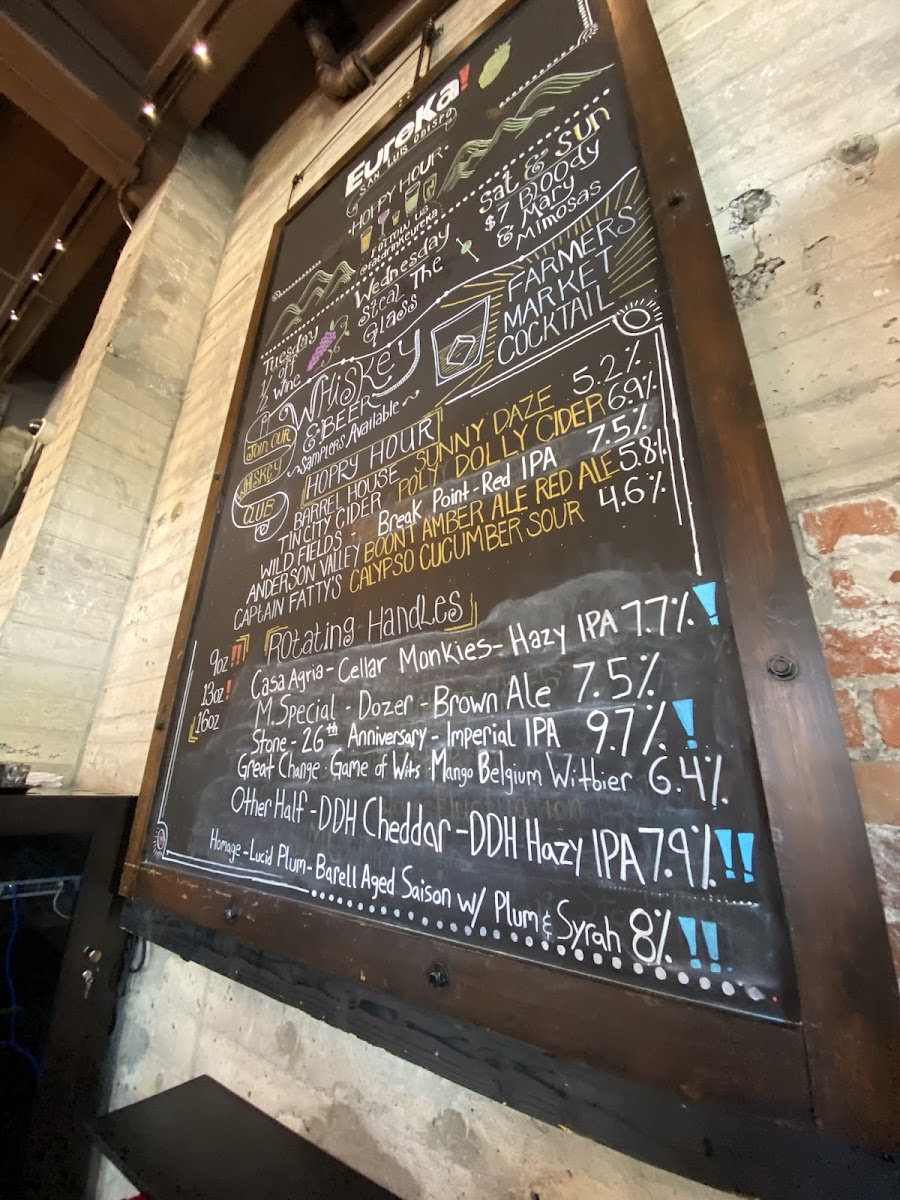 EureKa!
SAN LUIS OBISPO
HOPPY HOUR
FOLLOW US
@eatdrinkeureka
Tuesday
1/2 off
Wine
Wednesday
Steal The
Glass
Sat & Sun
$7 Bloody
Mary
& Mimosas
JOIN OUR
WHISKEY
CLUB
WHISKEY
& BEER
~Samplers Available~
FARMERS
MARKET
COCKTAIL
HOPPY HOUR
BARREL HOUSE SUNNY DAZE 5.2%
TIN CITY CIDER POLY DOLLY CIDER 6.9%
WILD FIELDS - Break Point - Red IPA 7.5%
ANDERSON VALLEY BOONT AMBER ALE RED ALE 5.8%
CAPTAIN FATTY'S CALYPSO CUCUMBER SOUR 4.6%
9oz !!
13oz !
16oz
ROtating HandLes
Casa Agria - Cellar Monkies - Hazy IPA 7.7% !
M.Special - Dozer - Brown Ale 7.5%
Stone - 26th Anniversary - Imperial IPA 9.7% !
Great Change · Game of Wits · Mango Belgium Witbier 6.4%
Other Half - DDH Cheddar - DDH Hazy IPA 7.9% !!
Homage - Lucid Plum - Barell Aged Saison w/ Plum & Syrah 8% !!